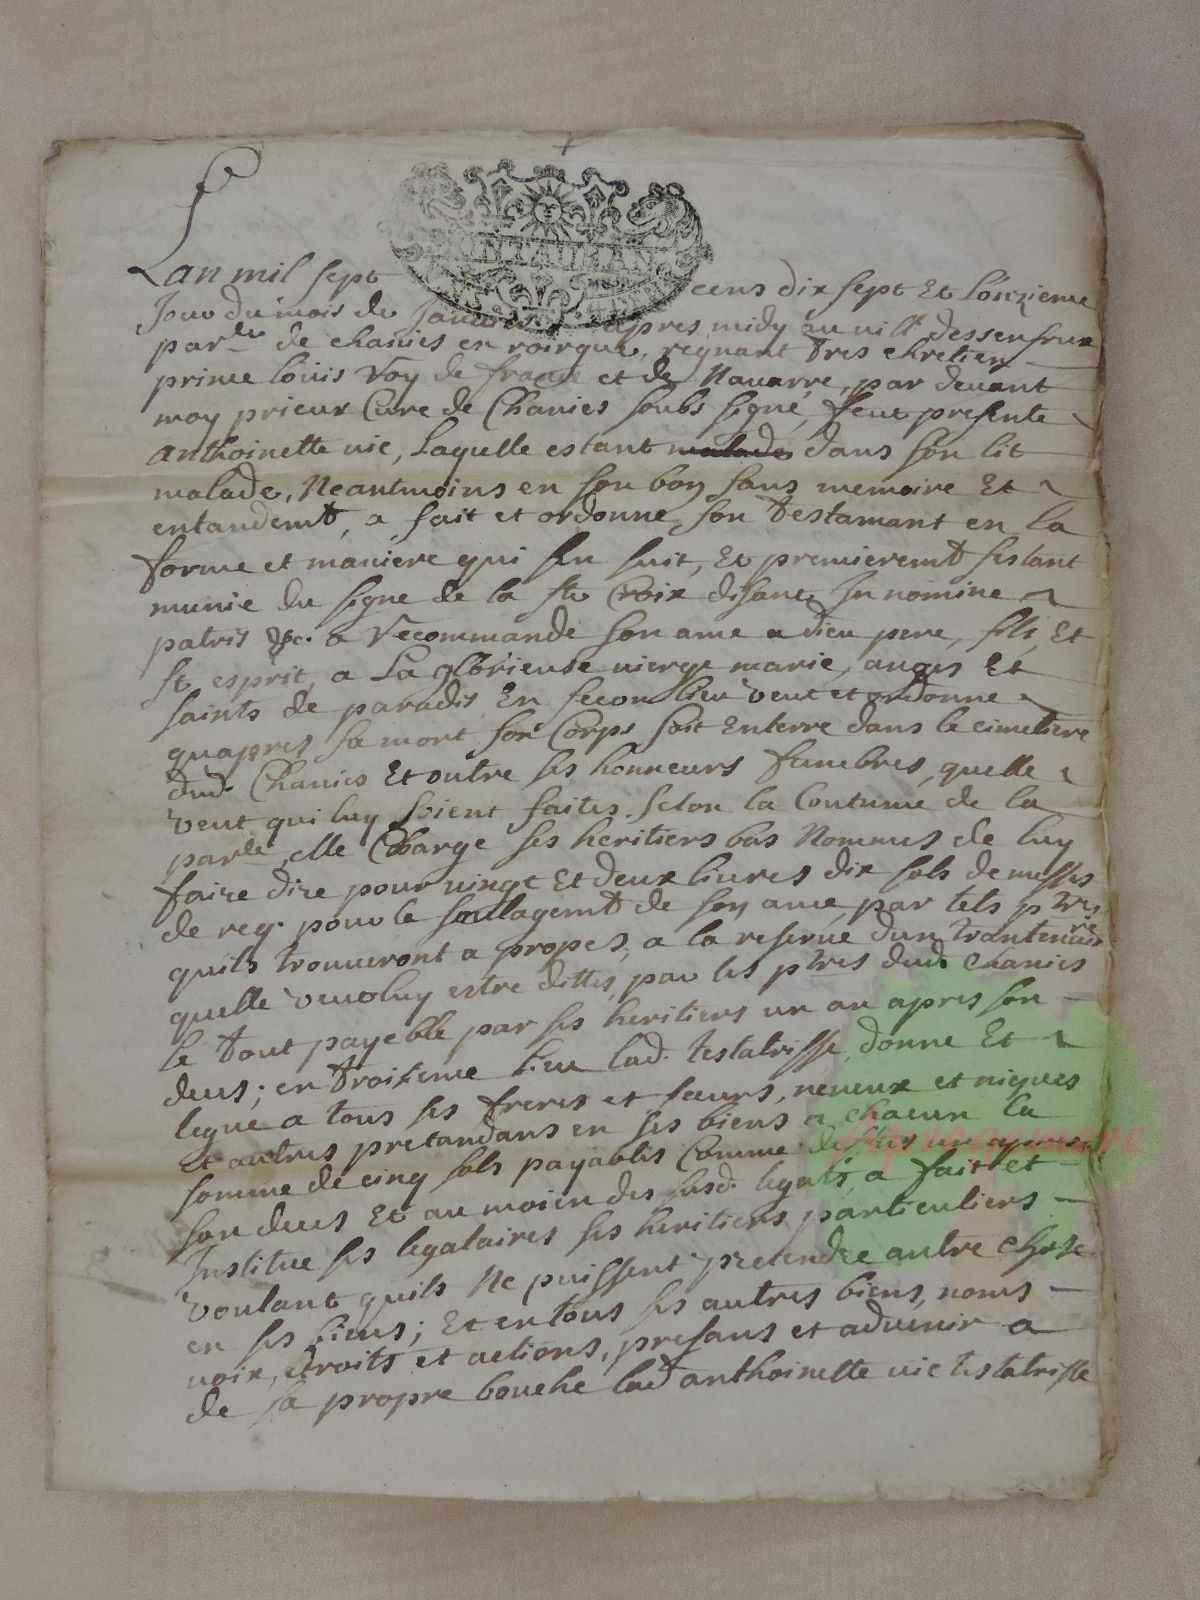 MONTAUBAN
Lan mil sept cens dix sept et l'onzieme
Jour du mois de Janvier apres midy au vill. dessenfrux
par.lle de chanies en roirgue, regnant tres chretien
prince louis roy de france et de Navarre, par devant
moy prieur Cure de Chanies soubs signé, feut presente
anthoinette vie, Laquelle estant malade dans son lit
malade, Neantmoins en son bon sans memoire Et
entandemt, a fait et ordonne son testamant en la
forme et maniere qui sen suit, Et premieremt sestant
munie du signe de la ste Croix disant In nomine
patris &c. a recommande son ame a dieu pere, fils, Et
st esprit, a La glorieuse vierge marie, anges Et
saints de paradis En secon lieu veut et ordonne
quapres sa mort son Corps soit Enterre dans le cimetiere
dud. Chanies Et outre ses honneurs funebres, quelle
veut qui luy soient faites selon la Coutume de la
par.lle, elle Charge ses heritiers bas Nommes de luy
faire dire pour vingt Et deux livres dix sols de messes
de req. pour le soulagemt de son ame par tels ptres
quils trouveront a propos, a la reserve dun trantenaire
quelle veut luy estre dittes par les ptres dud. Chanies
le tout payeble par ses heritiers un an apres son
deces; en troizieme lieu lad. testatrisse, donne Et
legue a tous ses freres et sœurs, neveux et nieques
et autres pretandans en ses biens a chacun la
somme de cinq sols payables Comme dessus un an apres
son deces Et au moien des susd. legats a fait et
Institue ses legataires ses heritiers particuliers
voulant quils Ne puissent pretendre autre chose
en ses biens; Et en tous ses autres biens, noms
voix, droits et actions, presans et advenir a
de sa propre bouche lad anthoinette vie testatrisse